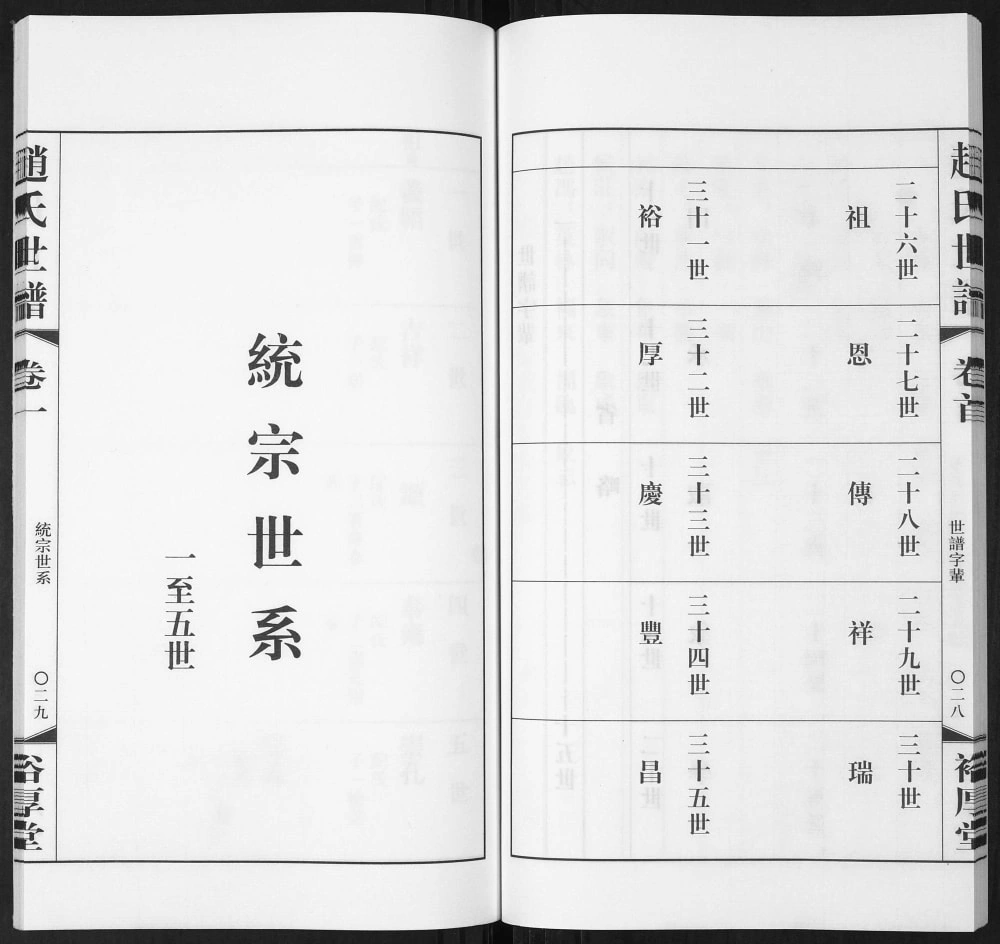 趙氏世譜
卷首
世譜字輩
〇二八
裕厚堂
二十六世
祖
二十七世
恩
二十八世
傳
二十九世
祥
三十世
瑞
三十一世
裕
三十二世
厚
三十三世
慶
三十四世
豐
三十五世
昌
統宗世系
一至五世
趙氏世譜
卷一
統宗世系
〇二九
裕厚堂